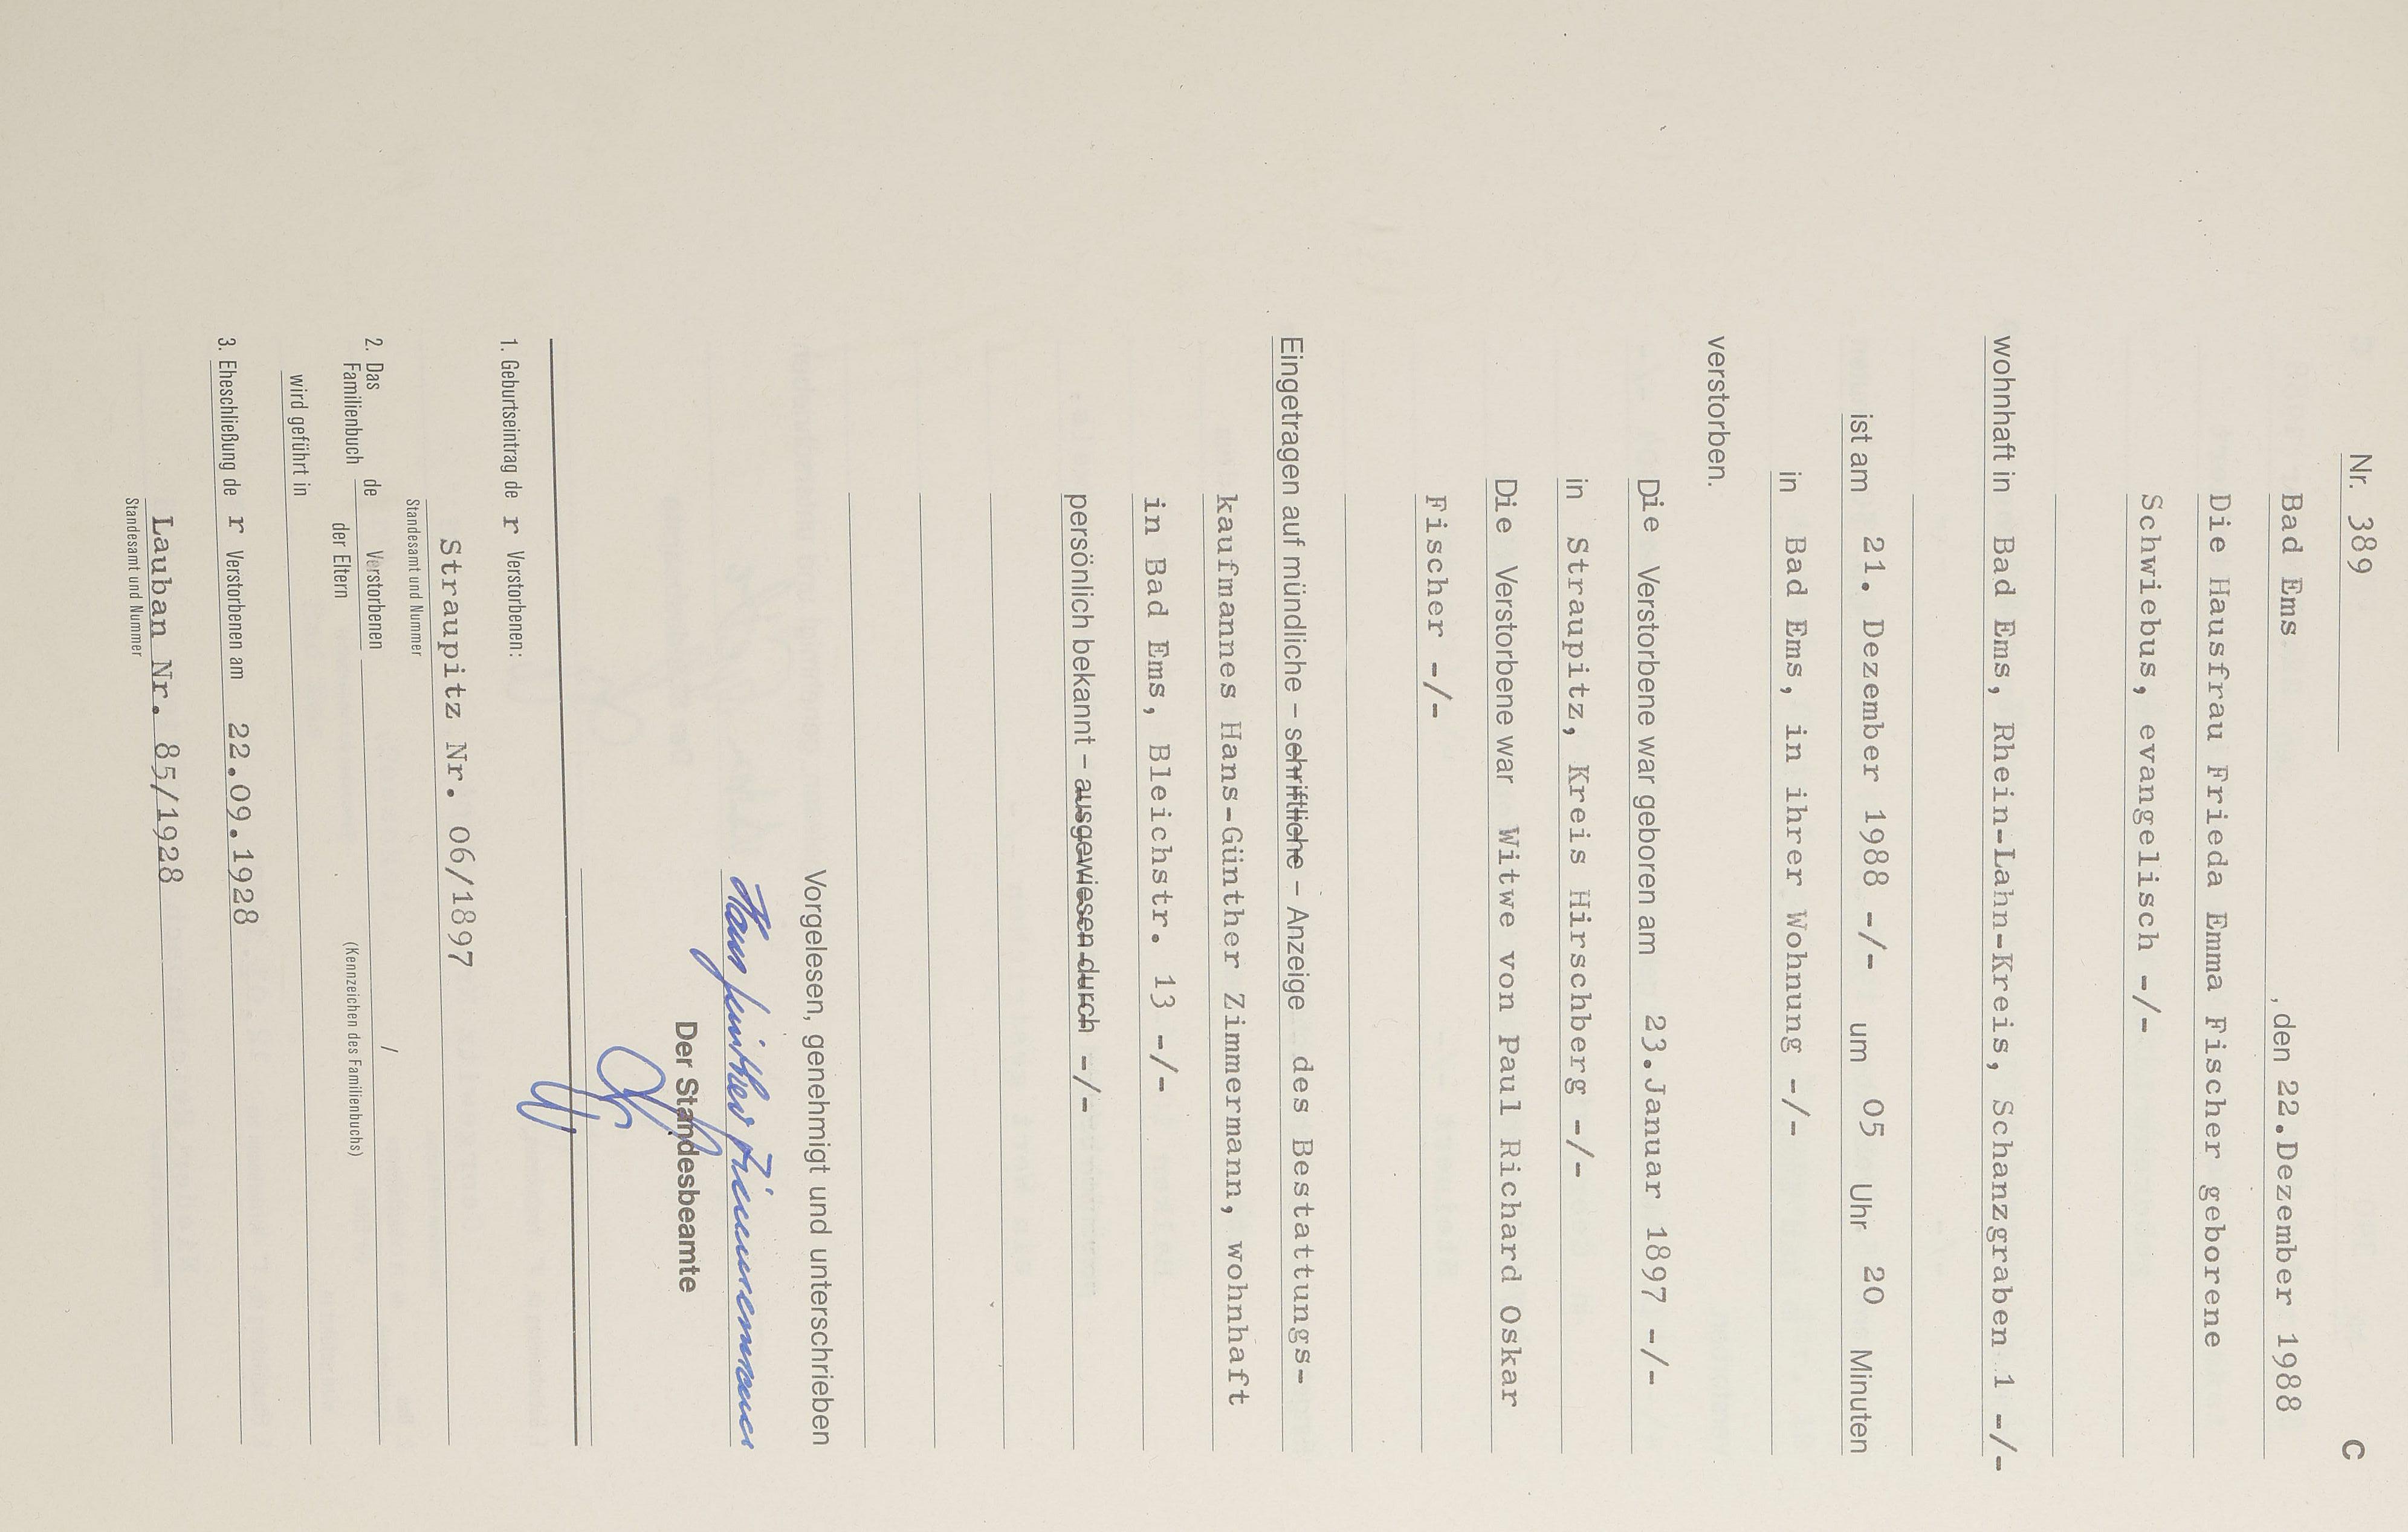 Nr. 389
C
Bad Ems, den 22.Dezember 1988
Die Hausfrau Frieda Emma Fischer geborene
Schwiebus, evangelisch -/-
wohnhaft in Bad Ems, Rhein-Lahn-Kreis, Schanzgraben 1 -/-
ist am 21. Dezember 1988 -/- um 05 Uhr 20 Minuten
in Bad Ems, in ihrer Wohnung -/-
verstorben.
Die Verstorbene war geboren am 23.Januar 1897 -/-
in Straupitz, Kreis Hirschberg -/-
Die Verstorbene war Witwe von Paul Richard Oskar
Fischer -/-
Eingetragen auf mündliche – schriftliche – Anzeige des Bestattungs-
kaufmannes Hans-Günther Zimmermann, wohnhaft
in Bad Ems, Bleichstr. 13 -/-
persönlich bekannt – ausgewiesen durch -/-
Vorgelesen, genehmigt und unterschrieben
Hans Günther Zimmermann
Der Standesbeamte
1. Geburtseintrag de r Verstorbenen:
Straupitz Nr. 06/1897
Standesamt und Nummer
2. Das Familienbuch de Verstorbenen /
der Eltern (Kennzeichen des Familienbuchs)
wird geführt in
3. Eheschließung de r Verstorbenen am 22.09.1928
Lauban Nr. 85/1928
Standesamt und Nummer